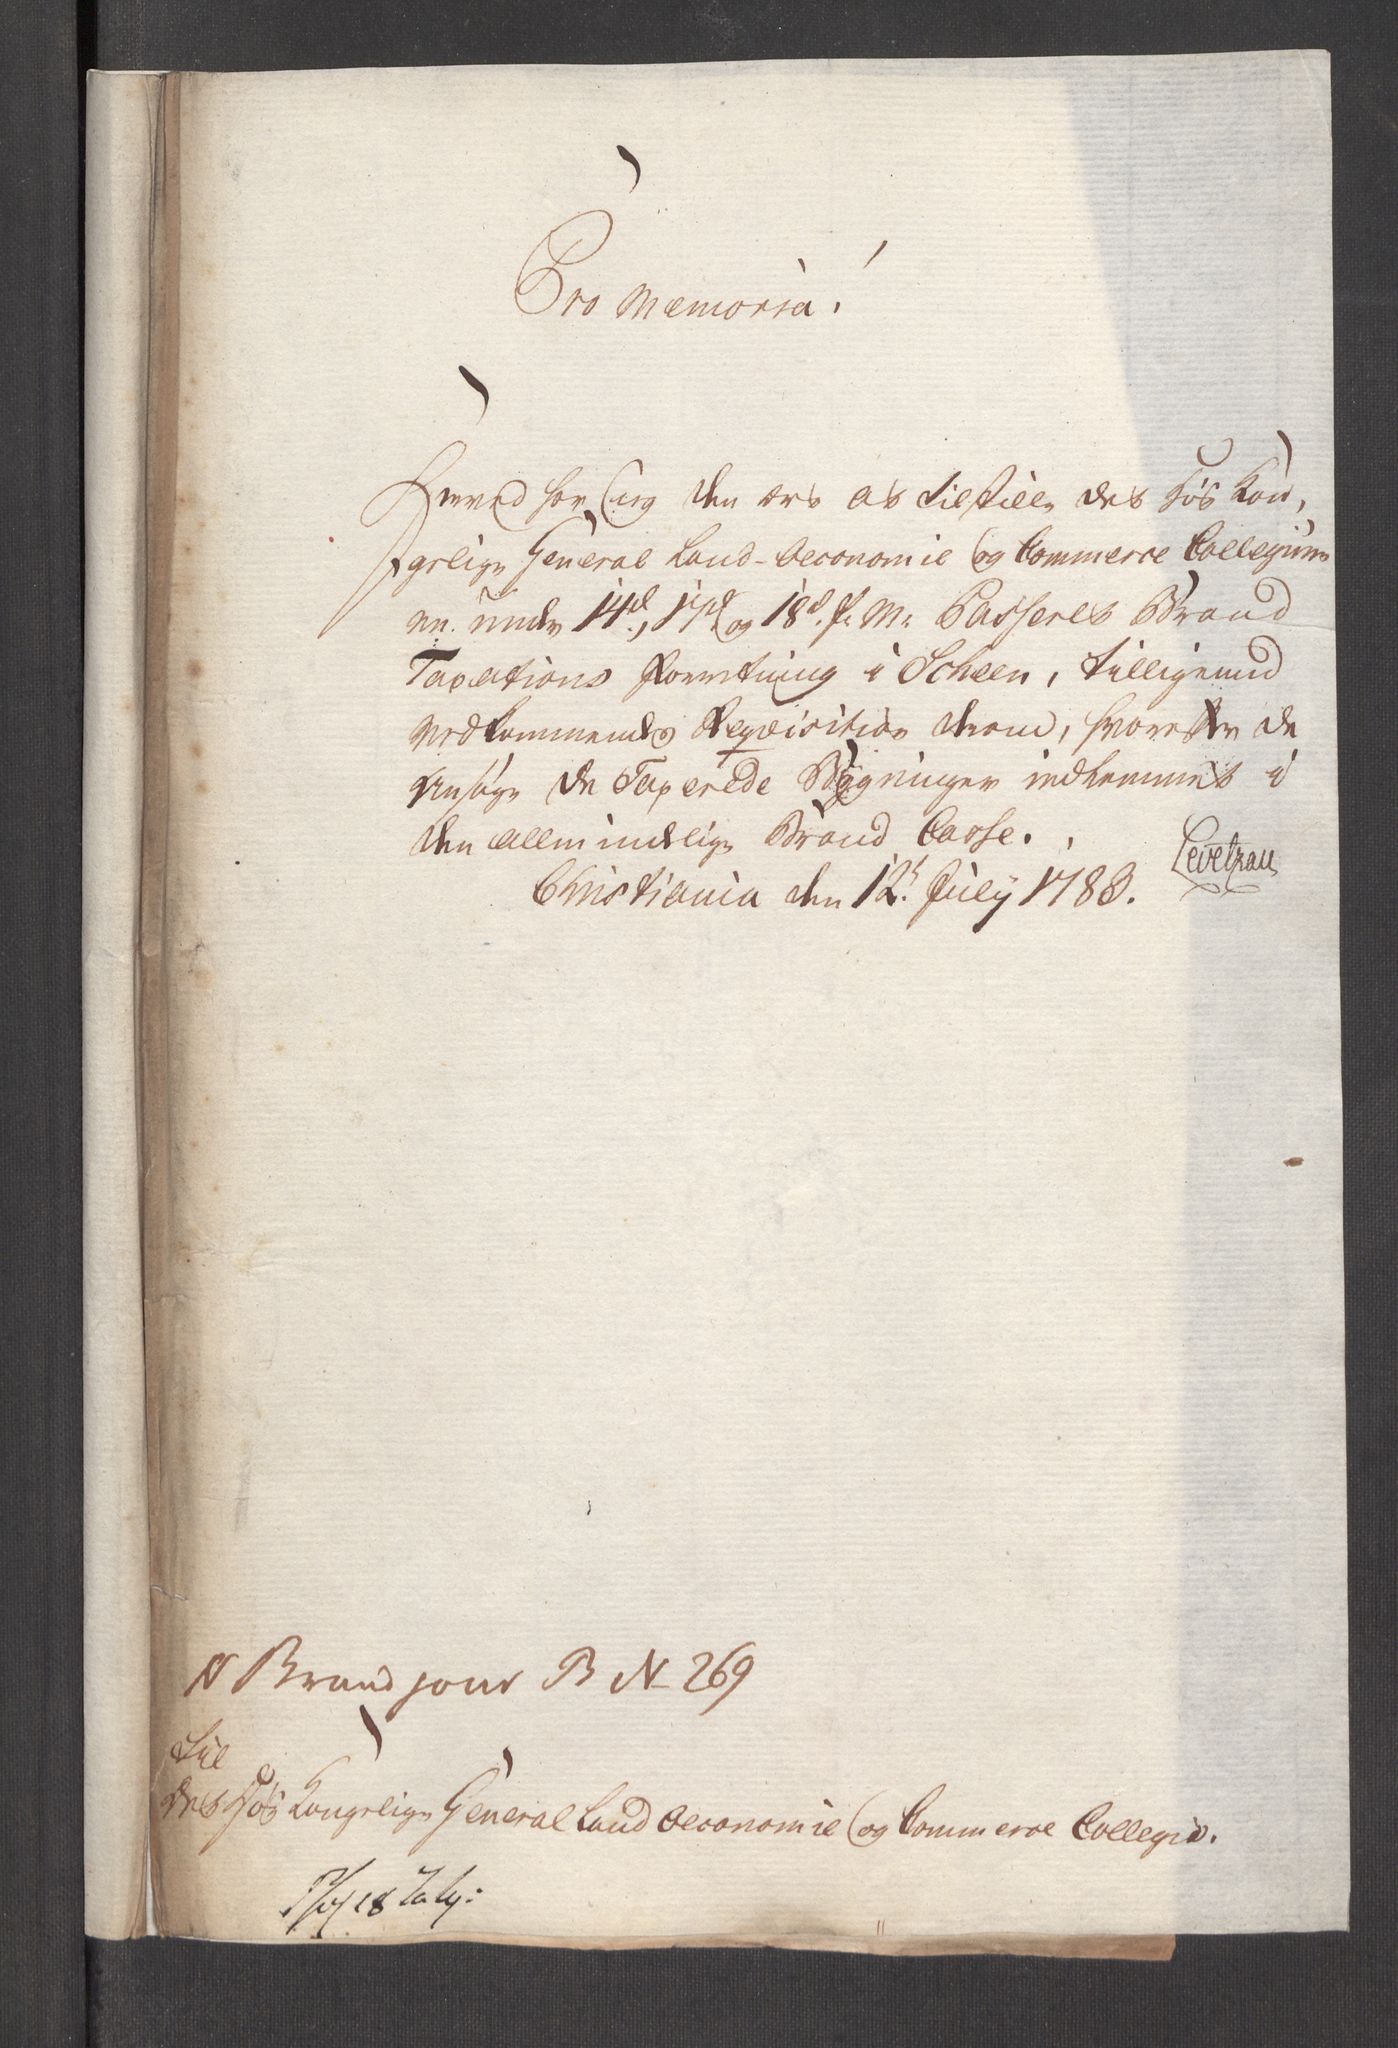 Pro Memoria!
Herved har jeg den ære at tilstille det høi Kon-
gelige General Land-Oeconomie og Commerce Collegium
en under 14d, 17d og 18d f: M: Passeret Brand
Taxations Forretning i Scheen, tilligemed
vedkommendes Requisition derom, hvorefter de
ansøge de Taxerede Bygninger indlemmet i
den allmindelige Brand Casse.
Christiania den 12t July 1783.
Levetzau
N Brand jour B No 269
Til
det høi Kongelige General Land Oeconomie og Commerce Collegio.
18 July.